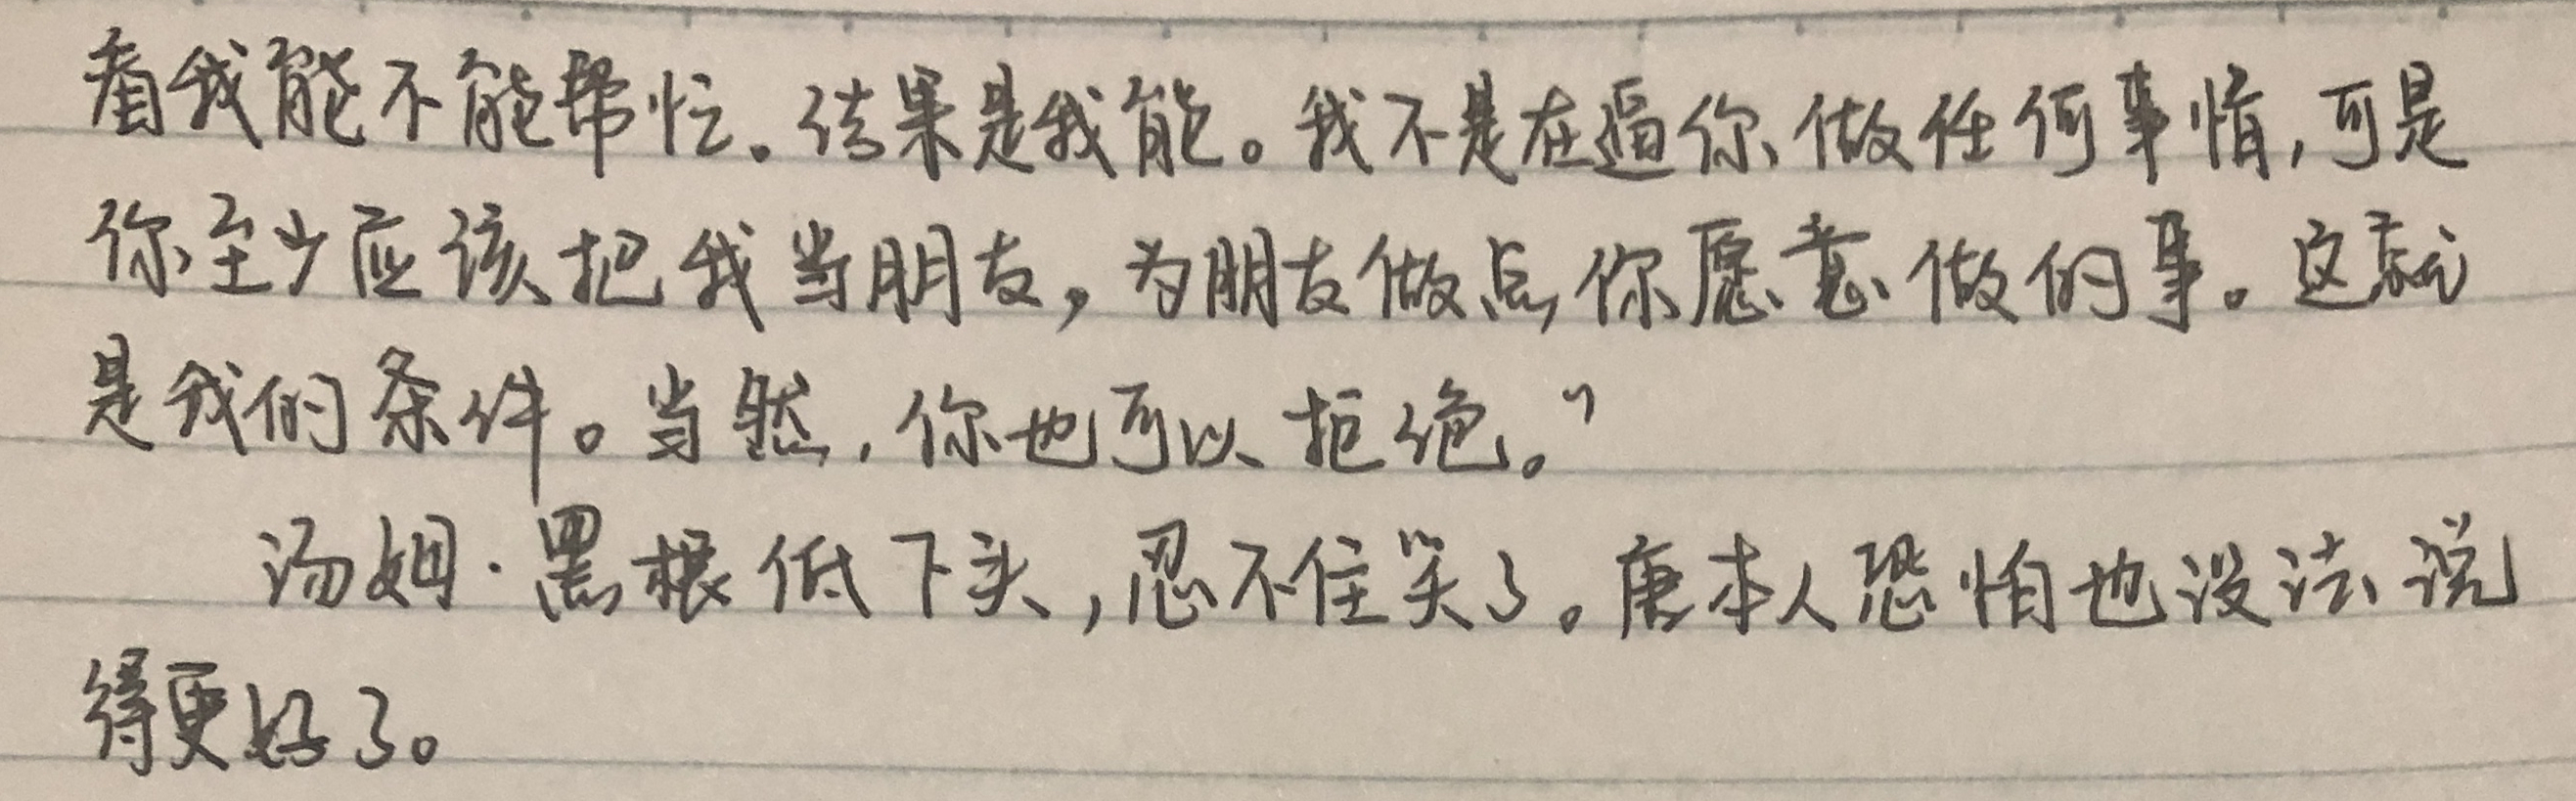 看我能不能帮忙。结果是我能。我不是在逼你做任何事情,可是
你至少应该把我当朋友,为朋友做点你愿意做的事。这就
是我的条件。当然,你也可以拒绝。”
汤姆·黑根低下头,忍不住笑了。唐本人恐怕也没法说
得更好了。